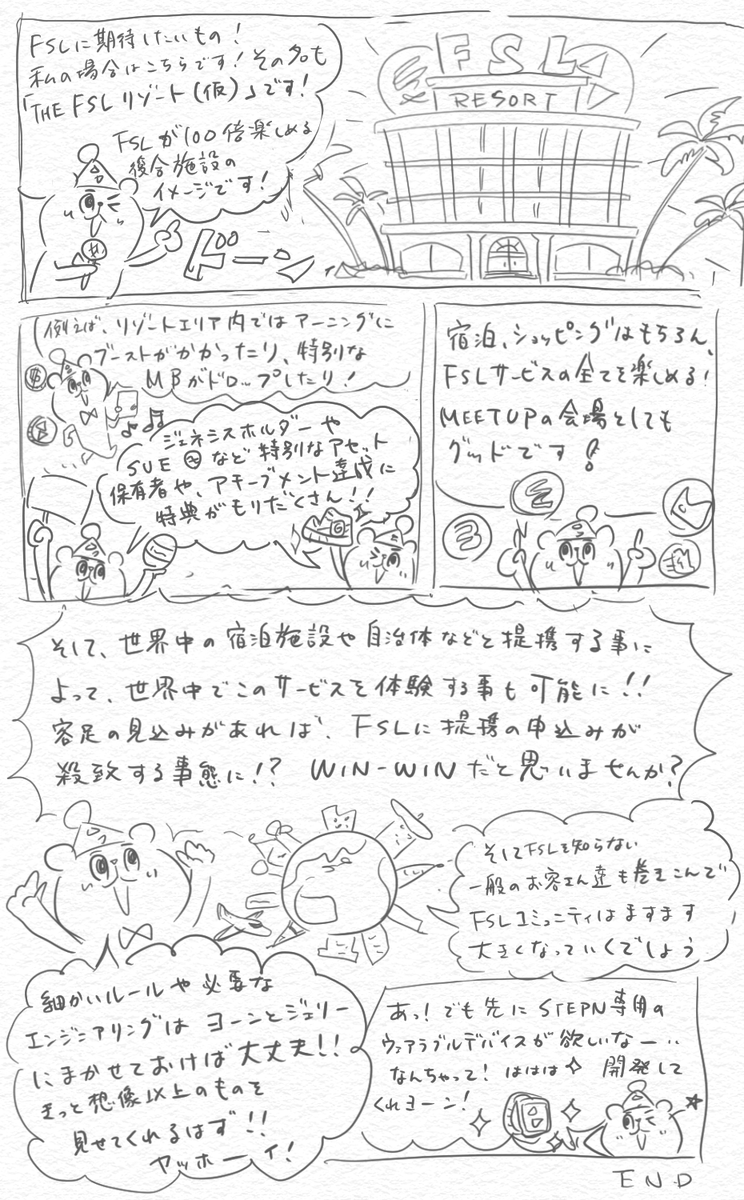 FSLに期待したいもの!
私の場合はこちらです!その名も
「THE FSL リゾート(仮)」です!
FSLが100倍楽しめる
複合施設の
イメージです!
ドーン
FSL
RESORT
例えば、リゾートエリア内ではアーニングに
ブーストがかかったり、特別な
MBがドロップしたり!
ジェネシスホルダーや
SUEなど特別なアセット
保有者や、アチーブメント達成に
特典がもりだくさん!!
宿泊、ショッピングはもちろん、
FSLサービスの全てを楽しめる!
MEETUPの会場としても
グッドです!
そして、世界中の宿泊施設や自治体などと提携する事に
よって、世界中でこのサービスを体験する事も可能に!!
客足の見込みがあれば、FSLに提携の申込みが
殺致する事態に!? WIN-WINだと思いませんか?
そしてFSLを知らない
一般のお客さん達も巻きこんで
FSLコミュニティはますます
大きくなっていくでしょう
細かいルールや必要な
エンジニアリングはヨーンとジェリー
にまかせておけば大丈夫!!
きっと想像以上のものを
見せてくれるはず!!
ヤッホーイ!
あっ!でも先にSTEPN専用の
ウェアラブルデバイスが欲しいなー..
なんちゃって!ははは✧ 開発して
くれヨーン!
END